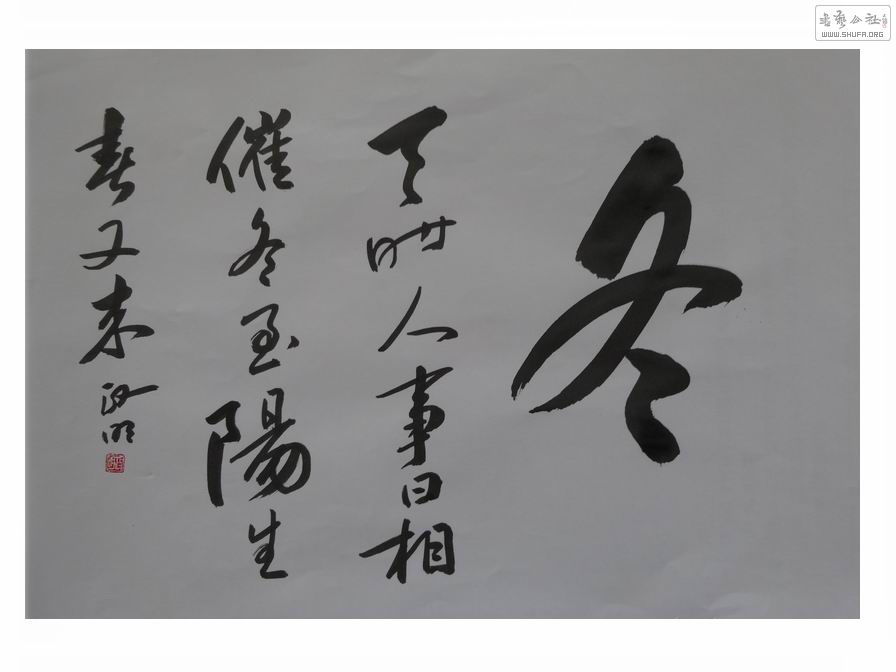 冬
天时人事日相
催冬至陽生
春又来
書藝公社
WWW.SHUFA.ORG